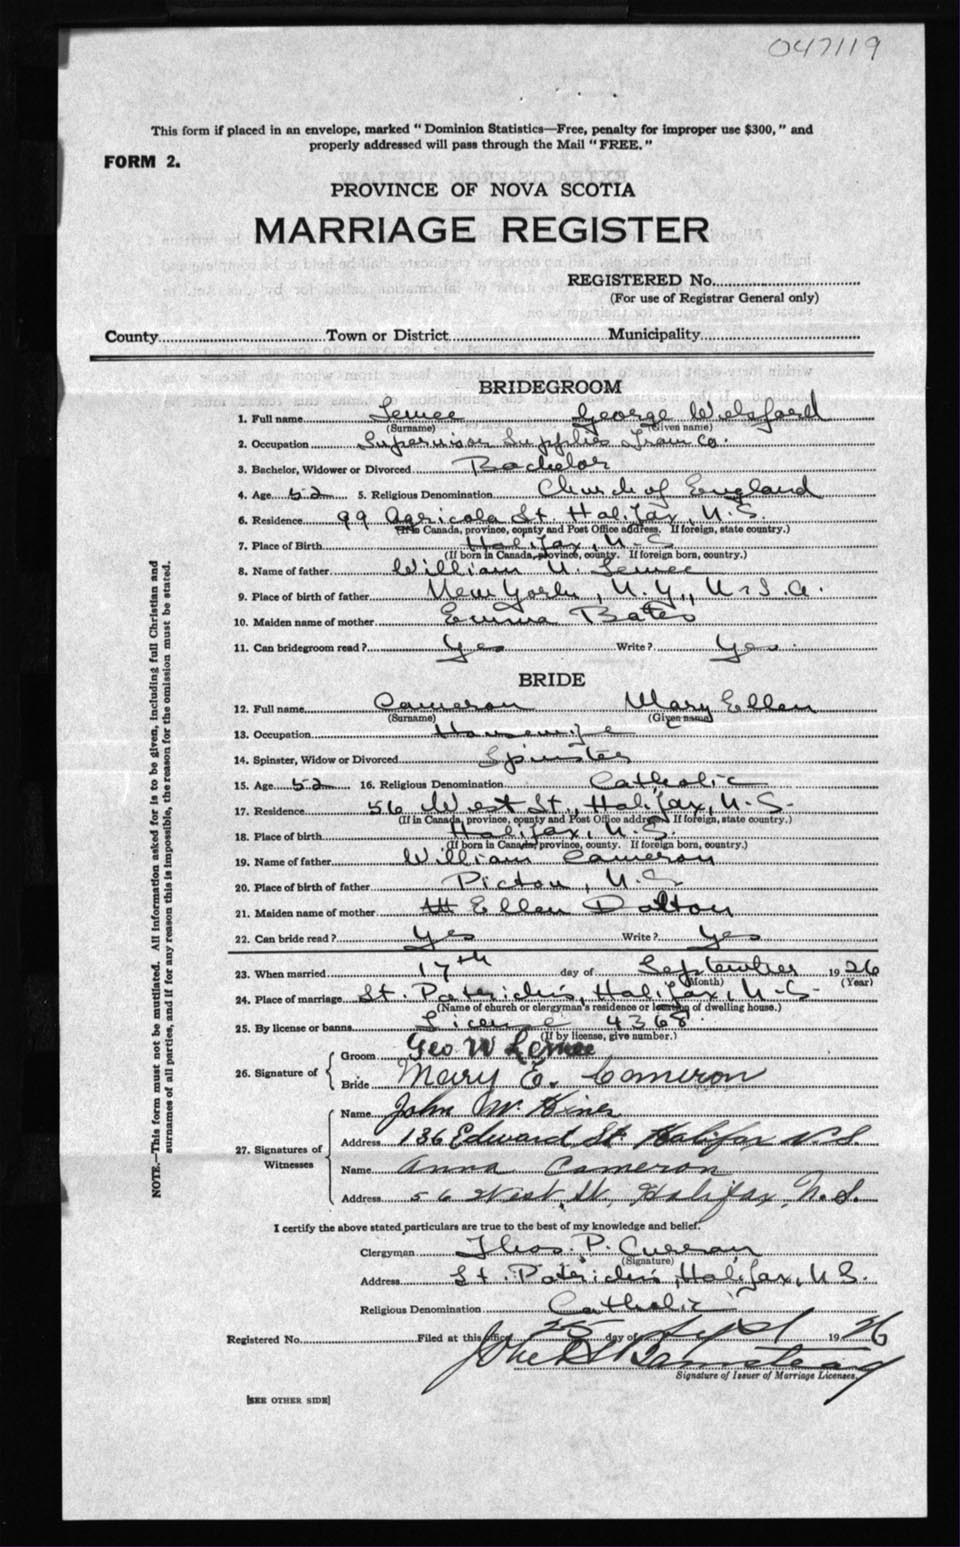 047119
This form if placed in an envelope, marked "Dominion Statistics—Free, penalty for improper use $300," and
properly addressed will pass through the Mail "FREE."
FORM 2.
PROVINCE OF NOVA SCOTIA
MARRIAGE REGISTER
REGISTERED No.
(For use of Registrar General only)
County Town or District Municipality
BRIDEGROOM
1. Full name Lemee George Welsford
(Surname) (Given name)
2. Occupation Supervisor Supplies Tram Co.
3. Bachelor, Widower or Divorced Bachelor
4. Age 52 5. Religious Denomination Church of England
6. Residence 99 Agricola St Halifax, N.S.
(If in Canada, province, county and Post Office address. If foreign, state country.)
7. Place of Birth Halifax, N.S.
(If born in Canada, province, county. If foreign born, country.)
8. Name of father William N. Lemee
9. Place of birth of father New York, N.Y., U.S.A.
10. Maiden name of mother Emma Bates
11. Can bridegroom read? Yes Write? Yes
BRIDE
12. Full name Cameron Mary Ellen
(Surname) (Given name)
13. Occupation Housewife
14. Spinster, Widow or Divorced Spinster
15. Age 52 16. Religious Denomination Catholic
17. Residence 56 West St., Halifax, N.S.
(If in Canada, province, county and Post Office address. If foreign, state country.)
18. Place of birth Halifax, N.S.
(If born in Canada, province, county. If foreign born, country.)
19. Name of father William Cameron
20. Place of birth of father Pictou, N.S.
21. Maiden name of mother Ellen Dalton
22. Can bride read? Yes Write? Yes
23. When married 17th day of September 1926
(Month) (Year)
24. Place of marriage St. Patrick's, Halifax, N.S.
(Name of church or clergyman's residence or location of dwelling house.)
25. By license or banns License 4368
(If by license, give number.)
26. Signature of
Groom Geo W Lemee
Bride Mary E. Cameron
27. Signatures of Witnesses
Name John W. Hines
Address 136 Edward St Halifax N.S.
Name Anna Cameron
Address 56 West St, Halifax, N.S.
I certify the above stated particulars are true to the best of my knowledge and belief.
Clergyman Thos. P. Curran
(Signature)
Address St. Patrick's, Halifax, N.S.
Religious Denomination Catholic
Registered No. Filed at this office 25 day of Sept 1926
Signature of Issuer of Marriage Licenses.
[SEE OTHER SIDE]
NOTE.—This form must not be mutilated. All information asked for is to be given, including full Christian and
surnames of all parties, and if for any reason this is impossible, the reason for the omission must be stated.